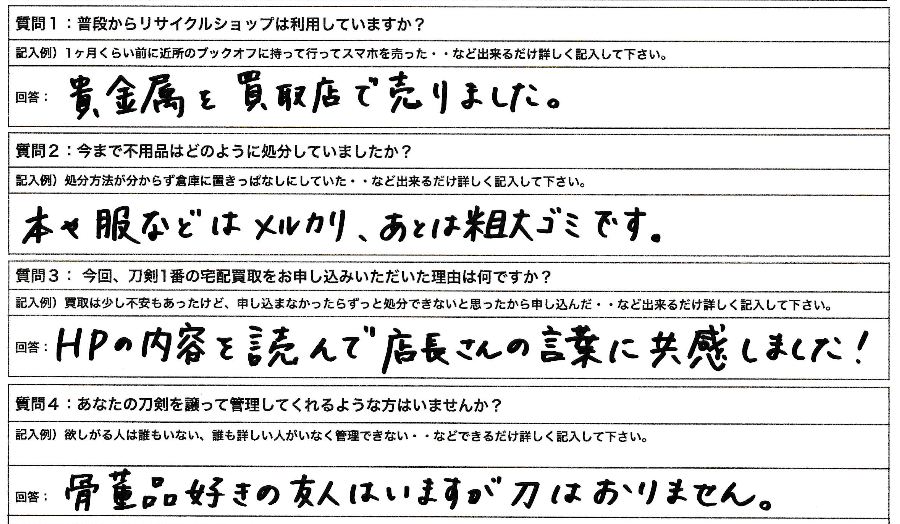 質問1：普段からリサイクルショップは利用していますか？
記入例）1ヶ月くらい前に近所のブックオフに持って行ってスマホを売った・・など出来るだけ詳しく記入して下さい。
回答： 貴金属を買取店で売りました。
質問2：今まで不用品はどのように処分していましたか？
記入例）処分方法が分からず倉庫に置きっぱなしにしていた・・など出来るだけ詳しく記入して下さい。
本や服などはメルカリ、あとは粗大ゴミです。
質問3： 今回、刀剣1番の宅配買取をお申し込みいただいた理由は何ですか？
記入例）買取は少し不安もあったけど、申し込まなかったらずっと処分できないと思ったから申し込んだ・・など出来るだけ詳しく記入して下さい。
回答： HPの内容を読んで店長さんの言葉に共感しました！
質問4：あなたの刀剣を譲って管理してくれるような方はいませんか？
記入例）欲しがる人は誰もいない、誰も詳しい人がいなく管理できない・・などできるだけ詳しく記入して下さい。
回答： 骨董品好きの友人はいますが刀はおりません。